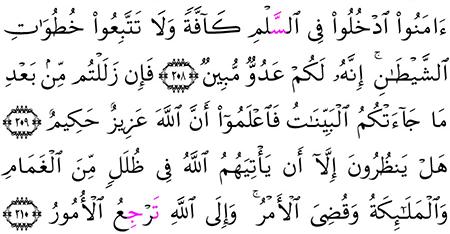 ءَامَنُوا۟ ٱدْخُلُوا۟ فِى ٱلسَّلْمِ كَآفَّةً وَلَا تَتَّبِعُوا۟ خُطُوَٰتِ
ٱلشَّيْطَٰنِ ۚ إِنَّهُۥ لَكُمْ عَدُوٌّ مُّبِينٌ ٢٥٨ فَإِن زَلَلْتُم مِّنۢ بَعْدِ
مَا جَآءَتْكُمُ ٱلْبَيِّنَٰتُ فَٱعْلَمُوٓا۟ أَنَّ ٱللَّهَ عَزِيزٌ حَكِيمٌ ٢٥٩
هَلْ يَنظُرُونَ إِلَّآ أَن يَأْتِيَهُمُ ٱللَّهُ فِى ظُلَلٍ مِّنَ ٱلْغَمَامِ
وَٱلْمَلَٰٓئِكَةُ وَقُضِىَ ٱلْأَمْرُ ۚ وَإِلَى ٱللَّهِ تَرْجِعُ ٱلْأُمُورُ ٢١٥